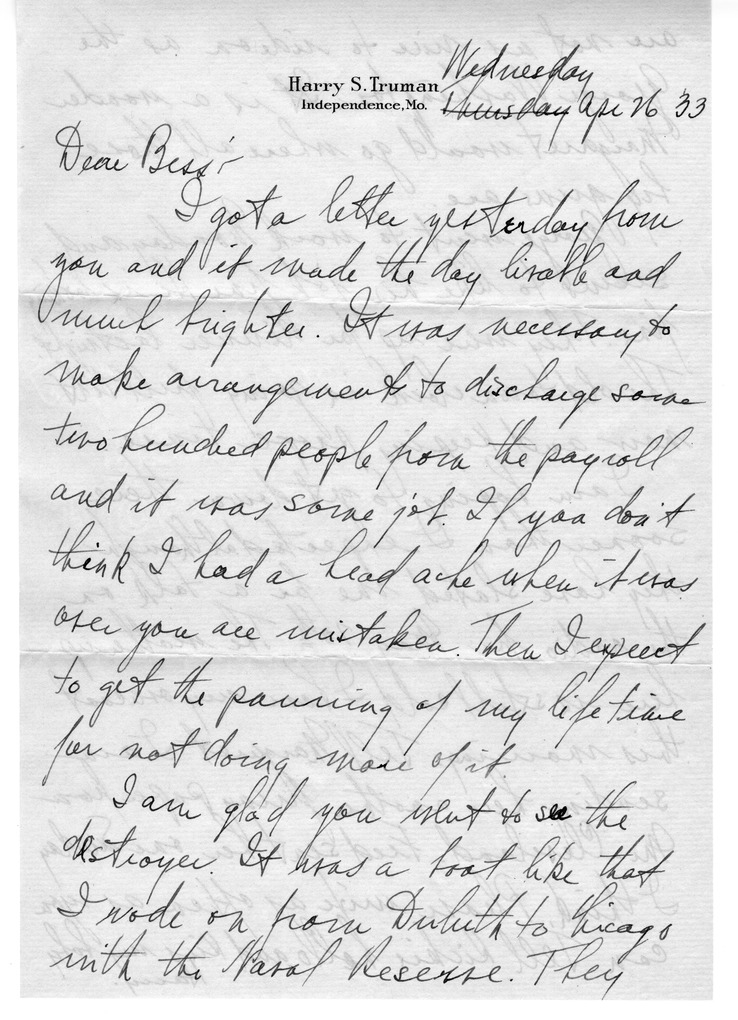 Harry S. Truman
Independence, Mo.
Wednesday
Thursday Apr 26 '33
Dear Bess:-
I got a letter yesterday from
you and it made the day livable and
much brighter. It was necessary to
make arrangements to discharge some
two hundred people from the payroll
and it was some job. If you don't
think I had a head ache when it was
over you are mistaken. Then I expect
to get the panning of my life time
for not doing more of it.
I am glad you went to see the
destroyer. It was a boat like that
I rode on from Duluth to Chicago
with the Naval Reserve. They